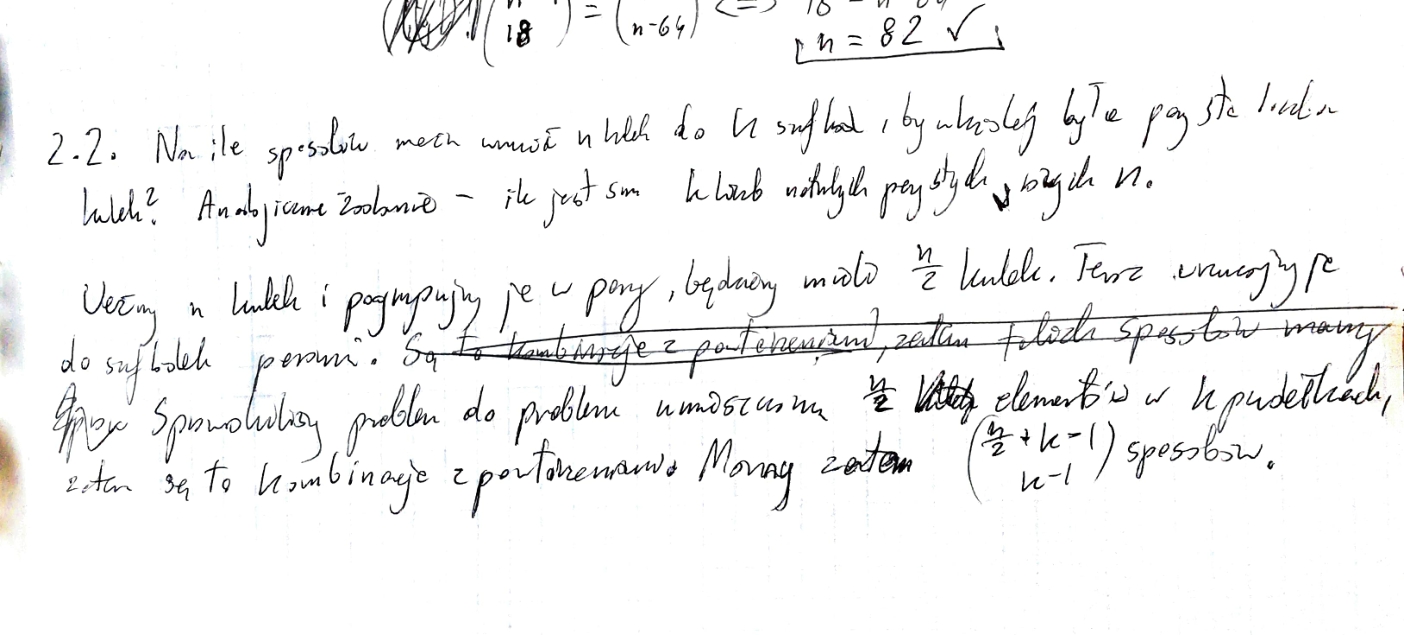 (18) = (n-64) <=>
n = 82 ✓
2.2. Na ile sposobów można n kulek do k szuflad, by w każdej była parzysta liczba
kulek? Analogiczne zadanie – ile jest sum k liczb naturalnych parzystych, n.
Weźmy n kulek i pogrupujmy je w pary, będziemy mieli n/2 kulek. Teraz wrzucajmy je
do szufladek parami. Są to kombinacje z powtórzeniami, zatem sposobów mamy
Sprowadziliśmy problem do problemu umieszczenia n/2 elementów w k pudełkach,
zatem są to kombinacje z powtórzeniami. Mamy zatem (n/2 + k - 1 k-1) sposobów.